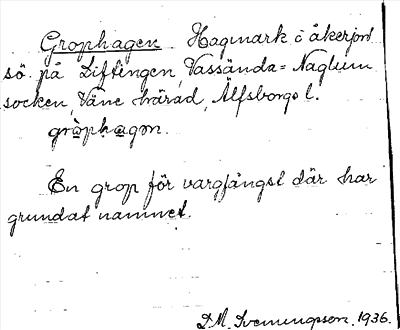 Grophagen Hagmark i åkerjord
sö på Liftingen, Vassända-Naglum
socken, Väne härad, Älfsborgs l.
gròphagən.
En grop för vargfångst där har
grundat namnet.
D. M. Svenungsson. 1936.